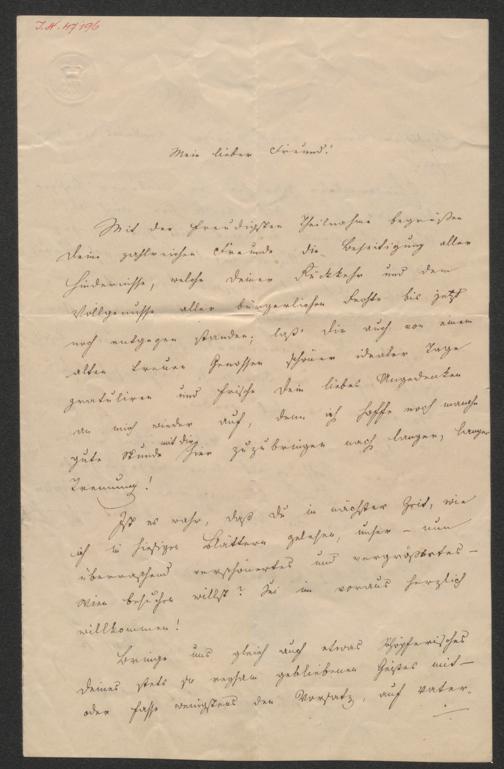 I.N. 47196
Mein lieber Freund!
Mit der freudigsten Theilnahme begrüßen
Deine zahlreichen Freunde die Beseitigung aller
Hindernisse, welche Deiner Rückkehr und dem
Vollgenusse aller bürgerlichen Rechte bis jetzt
noch entgegen standen; laß' Dir auch von einem
alten treuen Genossen schöner idealer Tage
gratuliren und frische Dein liebes Angedenken
an mich wieder auf, denn ich hoffe noch manche
gute Stunde mit Dir hier zuzubringen nach langer, langer
Trennung!
Ist es wahr, daß Du in nächster Zeit, wie
ich in hiesigen Blättern gelesen, unser – nun
überraschend verschönertes und vergrößertes –
Wien besuchen willst? Sei im voraus herzlich
willkommen!
Bringe uns gleich auch etwas Schöpferisches
Deines stets so regsam gebliebenen Geistes mit –
oder fasse wenigstens den Vorsatz, auf vater-